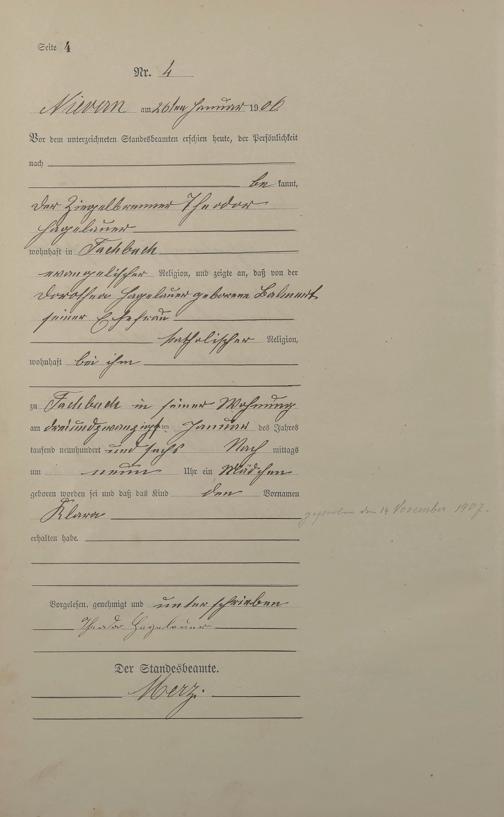 Seite 4
Nr. 4
Nievern am 26ten Januar 1906
Vor dem unterzeichneten Standesbeamten erschien heute, der Persönlichkeit
nach
be kannt,
der Ziegelbrenner Theodor
Hagelauer
wohnhaft in Fachbach
evangelischer Religion, und zeigte an, daß von der
Dorothea Hagelauer geborene
seiner Ehefrau
katholischer Religion,
wohnhaft bei ihm
zu Fachbach in seiner Wohnung
am dreiundzwanzigsten Januar des Jahres
tausend neunhundert und sechs Nach mittags
um neun Uhr ein Mädchen
geboren worden sei und daß das Kind den Vornamen
Klara
gestorben den 14 November 1907.
erhalten habe.
Vorgelesen, genehmigt und unterschrieben
Theodor Hagelauer
Der Standesbeamte.
Merz.